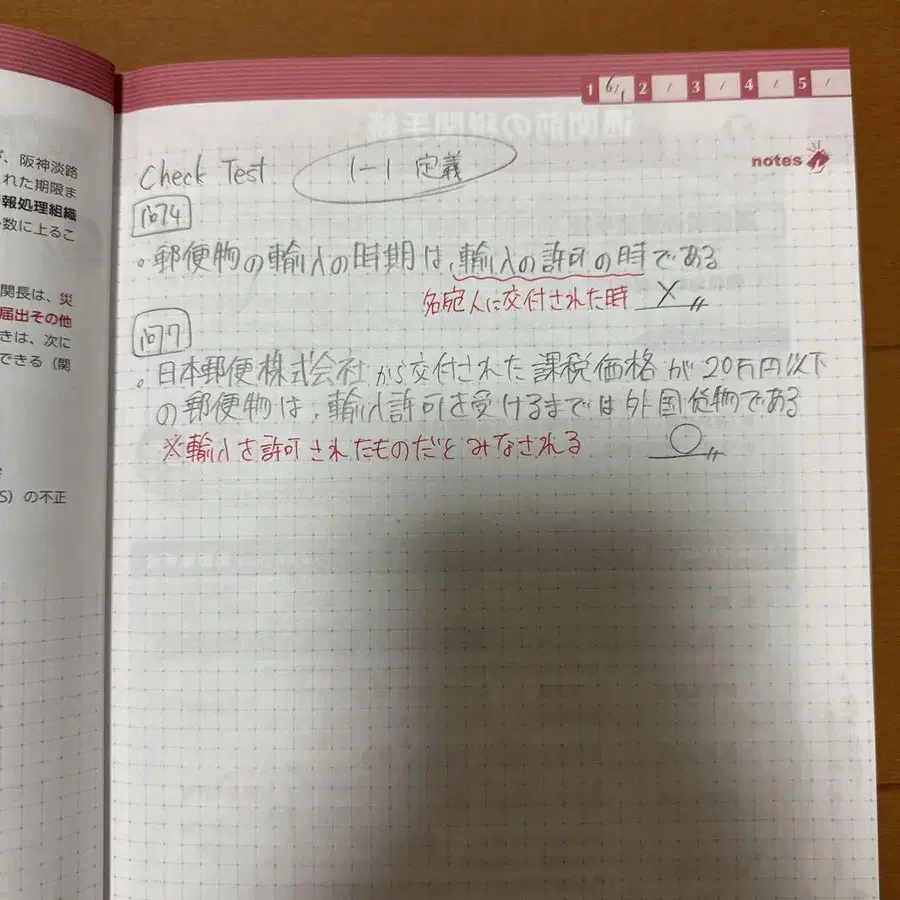 が、阪神淡路
された期限ま
報処理組織
数に上るこ
関長は、災
届出その他
きは、次に
できる（関
S）の不正
1 6/1 2 / 3 / 4 / 5 /
notes
Check Test
1-1 定義
問4
。郵便物の輸入の時期は、輸入の許可の時である
名宛人に交付された時 ×
問7
。日本郵便株式会社から交付された課税価格が20万円以下
の郵便物は、輸入許可を受けるまでは外国貨物である
※輸入を許可されたものだとみなされる ○